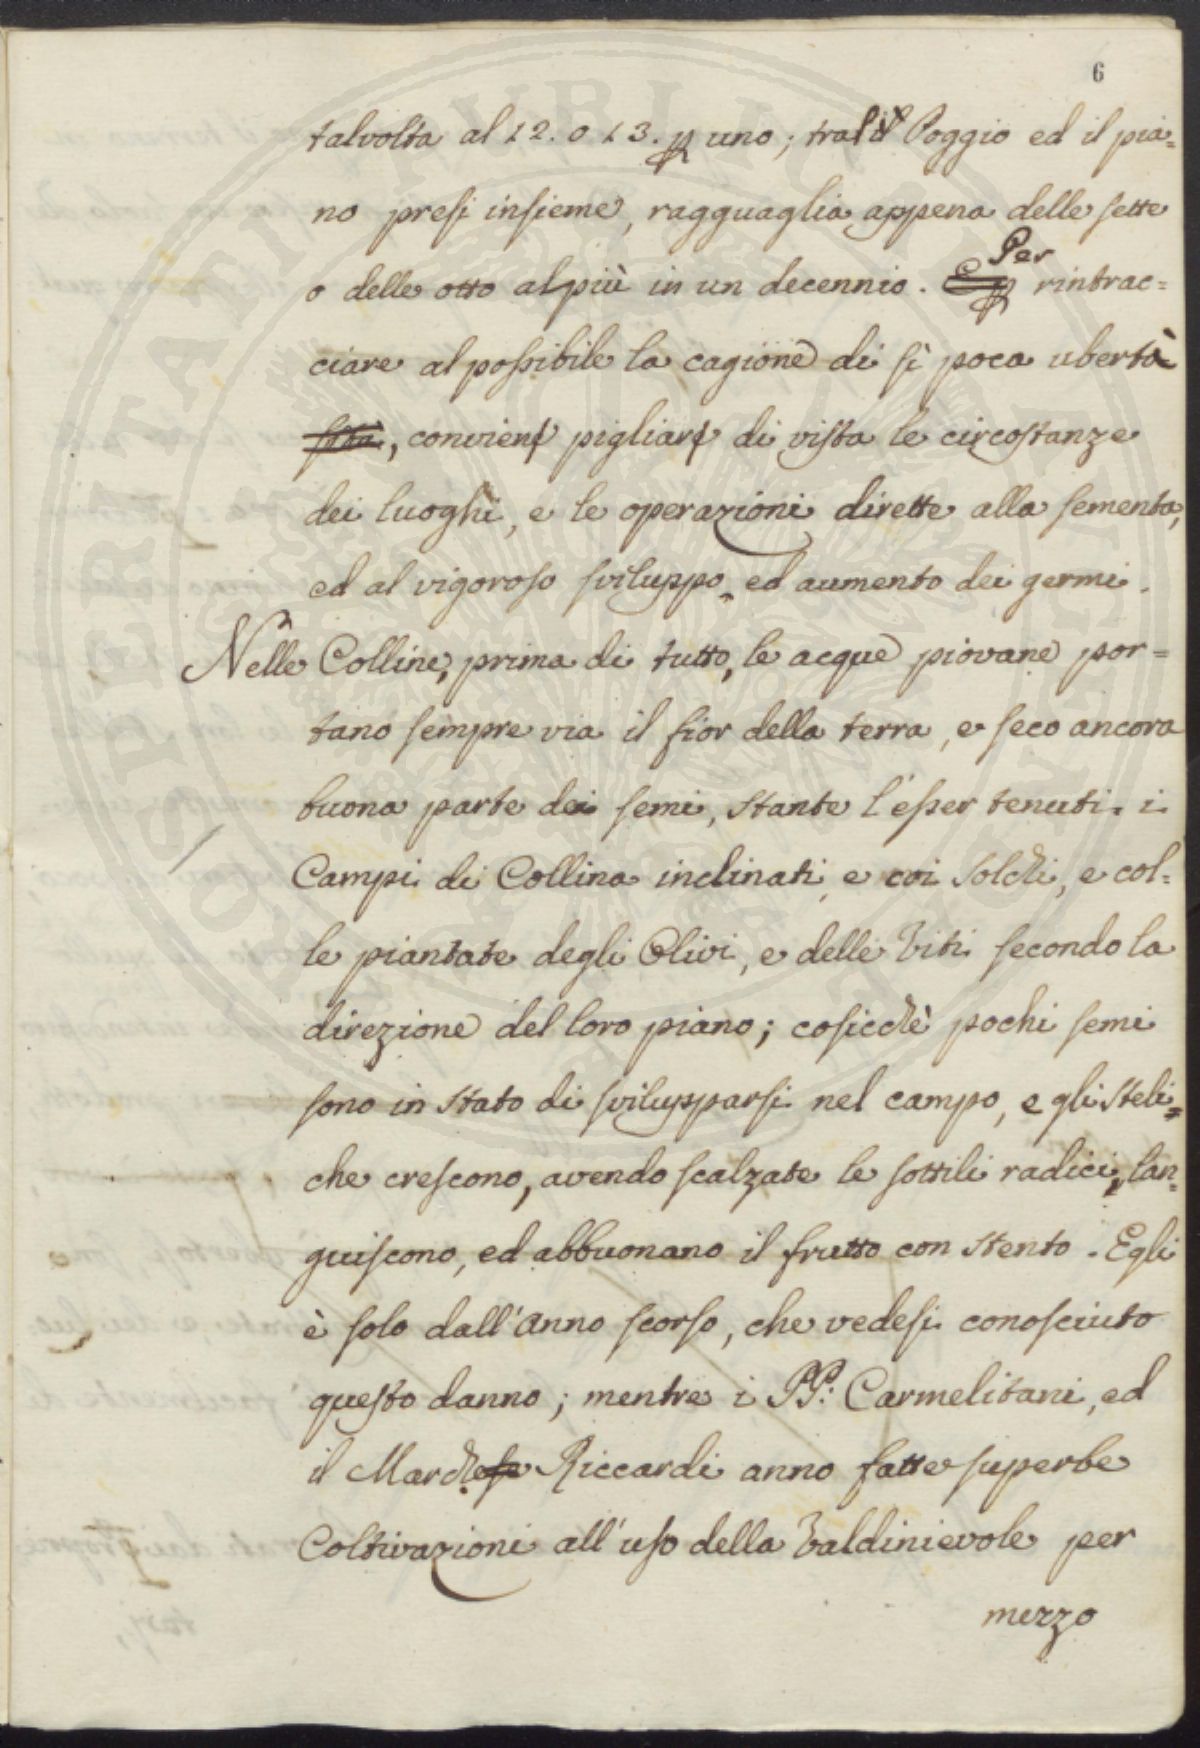 6
talvolta al 12. o 13. p uno; tral il Poggio ed il pia=
no presi insieme, ragguaglia appena delle sette
o delle otto al più in un decennio. Per rintrac=
ciare al possibile la cagione di sì poca ubertà
, convien pigliar di vista le circostanze
dei luoghi, e le operazioni dirette alla sementa,
ed al vigoroso sviluppo, ed aumento dei germi.
Nelle Colline, prima di tutto, le acque piovane por=
tano sempre via il fior della terra, e seco ancora
buona parte dei semi, stante l'esser tenuti i
Campi di Collina inclinati, e coi Solchi, e col=
le piantate degli Olivi, e delle Viti secondo la
direzione del loro piano; cosicchè pochi semi
sono in stato di svilupparsi nel campo, e gli steli
che crescono, avendo scalzate le sottili radici, lan=
guiscono, ed abbuonano il frutto con stento. Egli
è solo dall'Anno scorso, che vedesi conosciuto
questo danno; mentre i PP: Carmelitani, ed
il Marchese Riccardi anno fatte superbe
Coltivazioni all'uso della Valdinievole per
mezzo